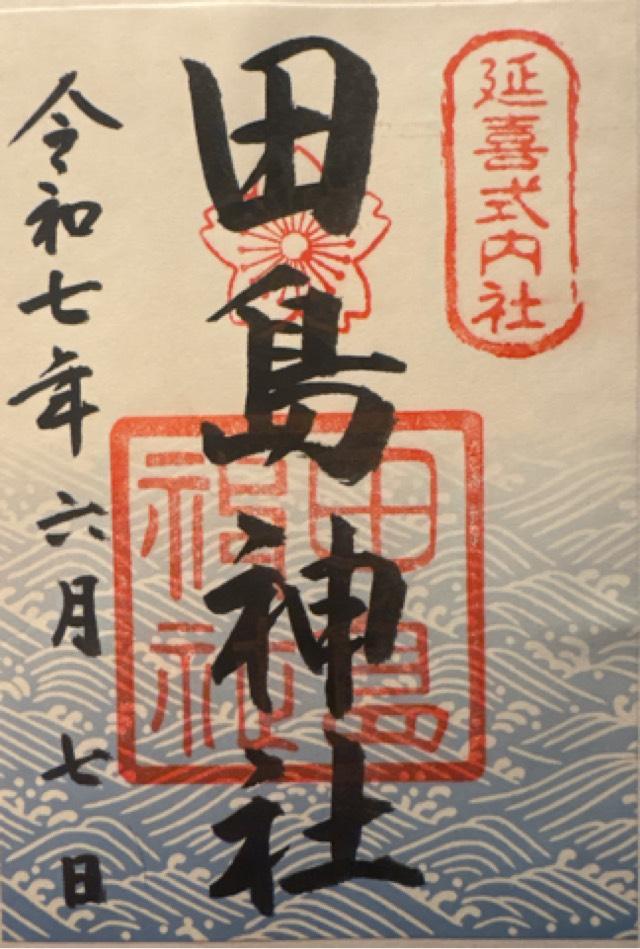 延喜式内社
田島神社
田島
神社
令和七年六月七日